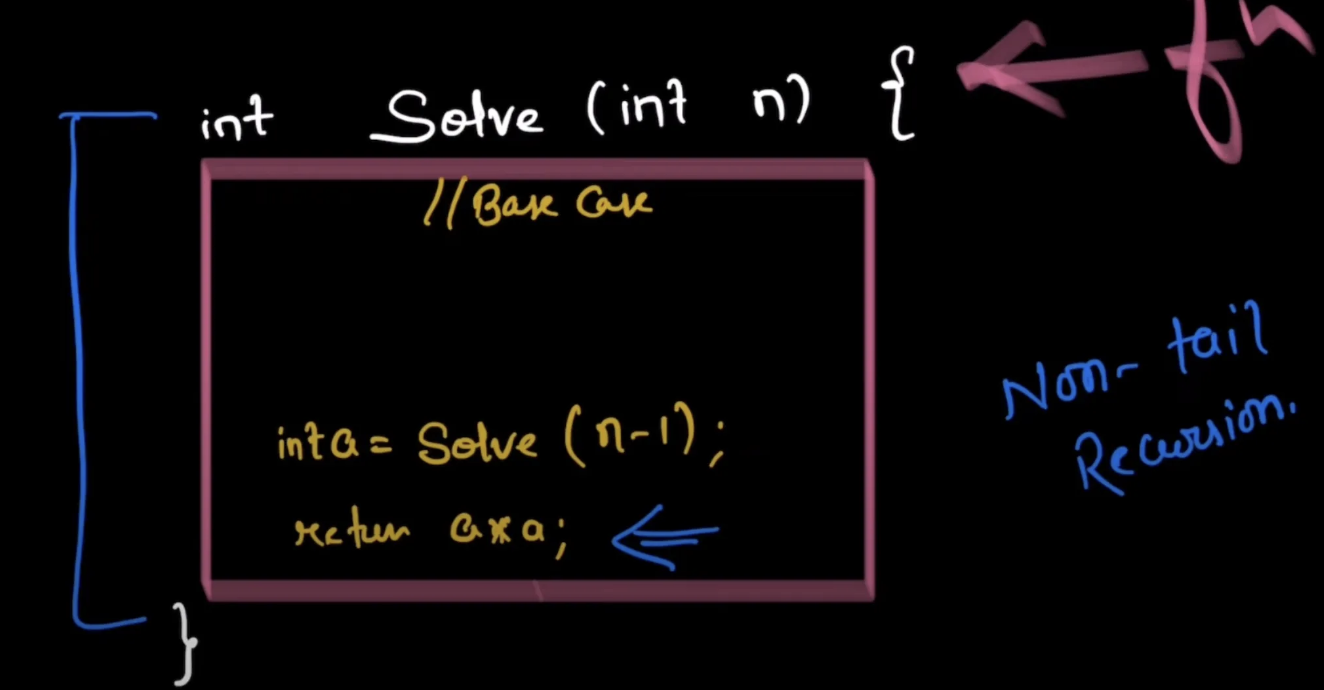 int Solve (int n) {
//Base Case
int a = Solve (n-1);
return a*a;
}
Non-tail
Recursion.